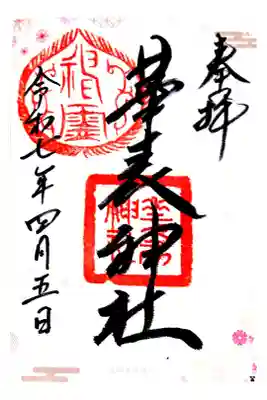 奉拝
華表神社
令和七年四月五日